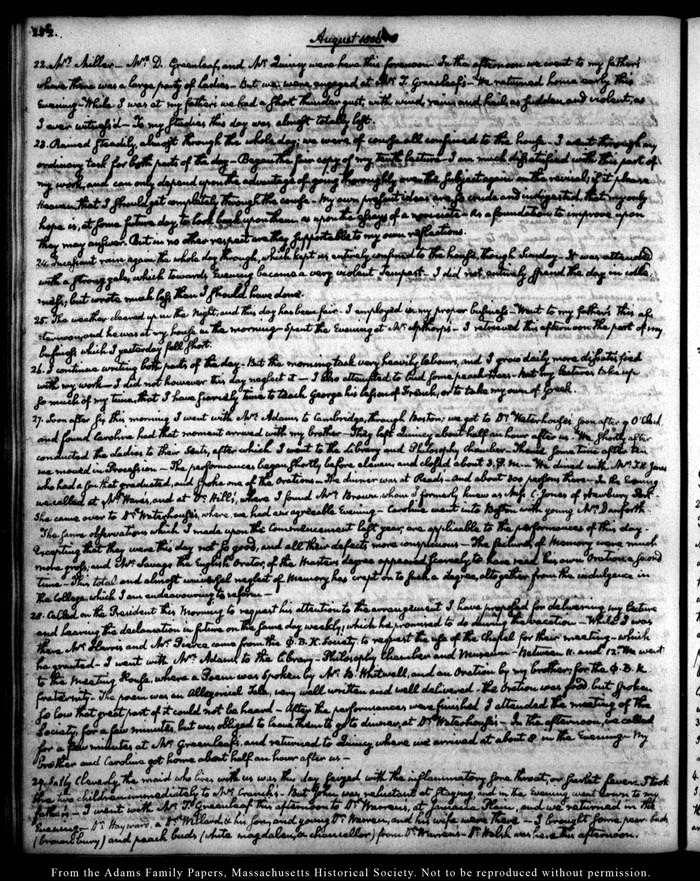 252.
August 1806
22. Mrs Miller — Mrs D. Greenleaf, and Mr Quincy were here this forenoon. In the afternoon we went to my father's
where there was a large party of Ladies — But we were engaged at Mr T. Greenleaf's — We returned home early this
Evening — While I was at my father's we had a short thunder gust, with wind, rain and hail, as sudden and violent, as
I ever witness'd — To my studies this day was almost totally lost.
23. Rained steadily, almost through the whole day; we were of course all confined to the house. I went through my
ordinary task for both parts of the day — Began the fair copy of my tenth lecture — I am much dissatisfied with this part of
my work, and can only depend upon the advantage of going thoroughly over the subject again on the revisal; if it please
Heaven that I should get completely through the course — My own present ideas are so crude and indigested, that my only
hope is, at some future day, to look back upon them as upon the essays of a noviciate — As a foundation to improve upon
they may answer. But in no other respect are they supportable to my own reflections.
24. Incessant rain again the whole day through, which kept us entirely confined to the house, though Sunday — It was attended
with a strong gale, which towards Evening became a very violent tempest. I did not entirely spend the day in idle-
ness, but wrote much less than I should have done.
25. The weather cleared up in the Night, and this day has been fair — I employed it in my proper business — Went to my father's this af-
ternoon, and he was at my house in the morning — Spent the Evening at Mr Apthorp's — I retrieved this afternoon the part of my
business which I yesterday fell short.
26. I continue writing both parts of the day — But the morning task very heavily labours, and I grow daily more dissatisfied
with my work — I did not however this day neglect it — I also attempted to bud some peach trees — But my lectures take up
so much of my time, that I have scarcely time to teach George his lesson of French, or to take my own of Greek.
27. Soon after six this morning I went with Mrs Adams to Cambridge, through Boston; we got to Dr Waterhouse's soon after 9 O'Clock.
and found Caroline had that moment arrived with my brother — They left Quincy about half an hour after us. We shortly after
conducted the Ladies to their Seats, after which I went to the Library and Philosophy chamber. There some time after ten
we moved in Procession — The performances began shortly before eleven, and closed about 3. P.M. — We dined with Mr T. K. Jones
who had a son that graduated, and spoke one of the Orations — The dinner was at Reads — And about 300 persons there — In the Evening
we called at Mr Ware's, and at Dr Hill's, where I found Mrs Brown, whom I formerly knew as Miss C. Jones of Newbury Port.
She came over to Dr Waterhouse's, where we had an agreeable Evening — Caroline went into Boston with young Mr Danforth.
The same observations which I made upon the Commencement last year, are applicable to the performances of this day.
Excepting that they were this day not so good, and all their defects more conspicuous — The failures of Memory were much
more gross, and Mr Savage the English Orator, of the Masters degree appeared scarcely to have read his own Oration a second
time. This total and almost universal neglect of Memory has crept on to such a degree, altogether from the indulgence in
the College, which I am endeavouring to reform —
28. Called on the President this Morning to request his attention to the arrangement I have proposed for delivering my lecture
and hearing the declamation in future on the same day weekly; which he promised to do during the vacation — While I was
there Mr Harris and Mr Peirce came from the Φ. B. K. Society to request the use of the Chapel for their meeting — which
he granted — I went with Mrs Adams, to the Library — Philosophy chamber and Museum — Between 11. and 12. We went
to the Meeting House, where a Poem was spoken by Mr B. Whitwell, and an Oration by my brother, for the Φ. B. K.
fraternity. The poem was an Allegorical Tale, very well written and well delivered — the Oration was good but spoken
so low that great part of it could not be heard — After the performances were finished I attended the meeting of the
Society, for a few minutes, but was obliged to leave them to go to dinner, at Dr Waterhouse's — In the afternoon, we called
for a few minutes at Mr Greenleaf's, and returned to Quincy where we arrived at about 8 in the Evening — My
brother and Caroline got home about half an hour after us —
29. Sally Cleverly, the maid who lives with us was this day seized with the inflammatory sore throat, or scarlet fever. I took
the two children immediately to Mr Cranch's — But John was reluctant at staying, and in the evening went down to my
father's — I went with Mr T. Greenleaf this afternoon to Dr Warren's, at Jamaica Plain, and we returned in the
Evening — Dr Hayward, a Dr Willard & his son, and young Dr Warren, and his wife were there — I brought some pear buds
(brown bury) and peach buds (white magdalen, & chancellor) from Dr Warren's — Dr Welsh was here this afternoon.
From the Adams Family Papers, Massachusetts Historical Society. Not to be reproduced without permission.